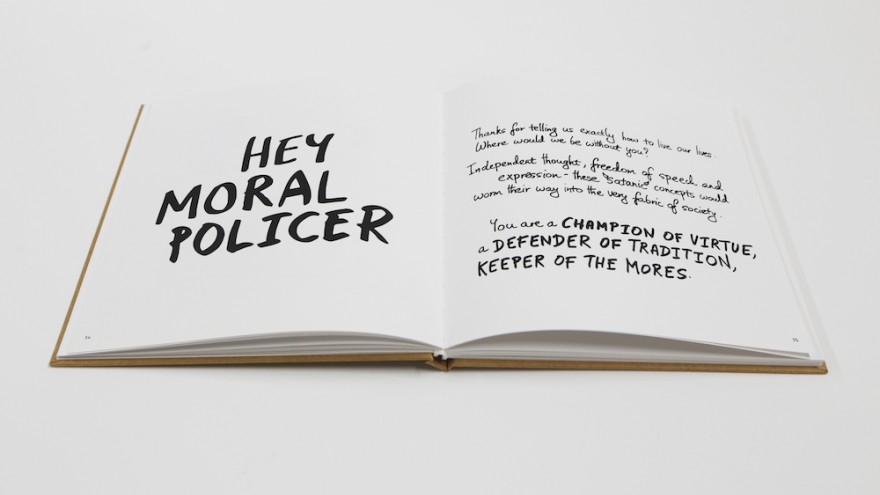 HEY
MORAL
POLICER
Thanks for telling us exactly how to live our lives.
Where would we be without you?
Independent thought, freedom of speech and
expression - these "Satanic" concepts would
worm their way into the very fabric of society.
You are a CHAMPION OF VIRTUE,
a DEFENDER OF TRADITION,
KEEPER OF THE MORES.